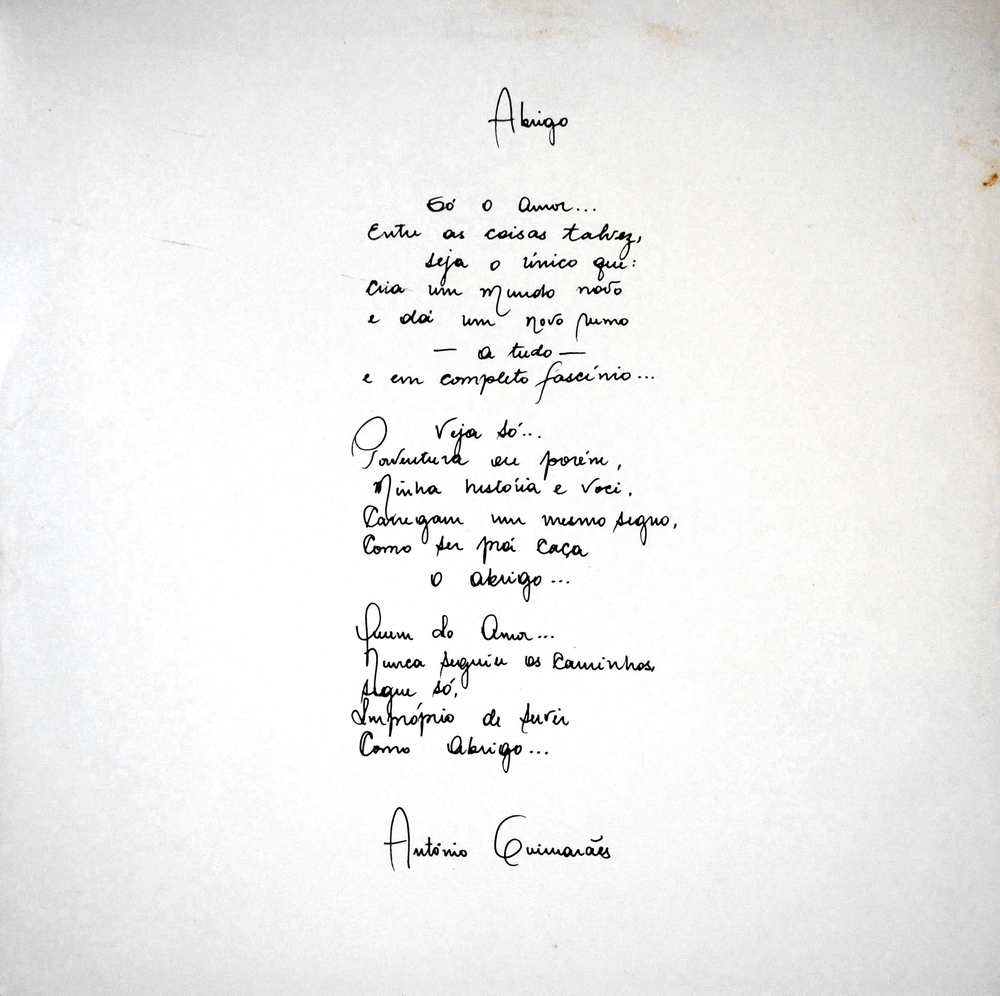 Abrigo
Só o Amor...
Entre as coisas talvez,
seja o único que:
Cria um mundo novo
e dá um novo rumo
— a tudo —
e em completo fascínio...
Veja só...
Porventura ou porém,
Minha história e você,
Carregam um mesmo signo,
Como ser prá caça
o abrigo...
Quem do Amor...
Nunca seguiu os caminhos,
segue só,
Impróprio de servir
Como Abrigo...
António Guimarães